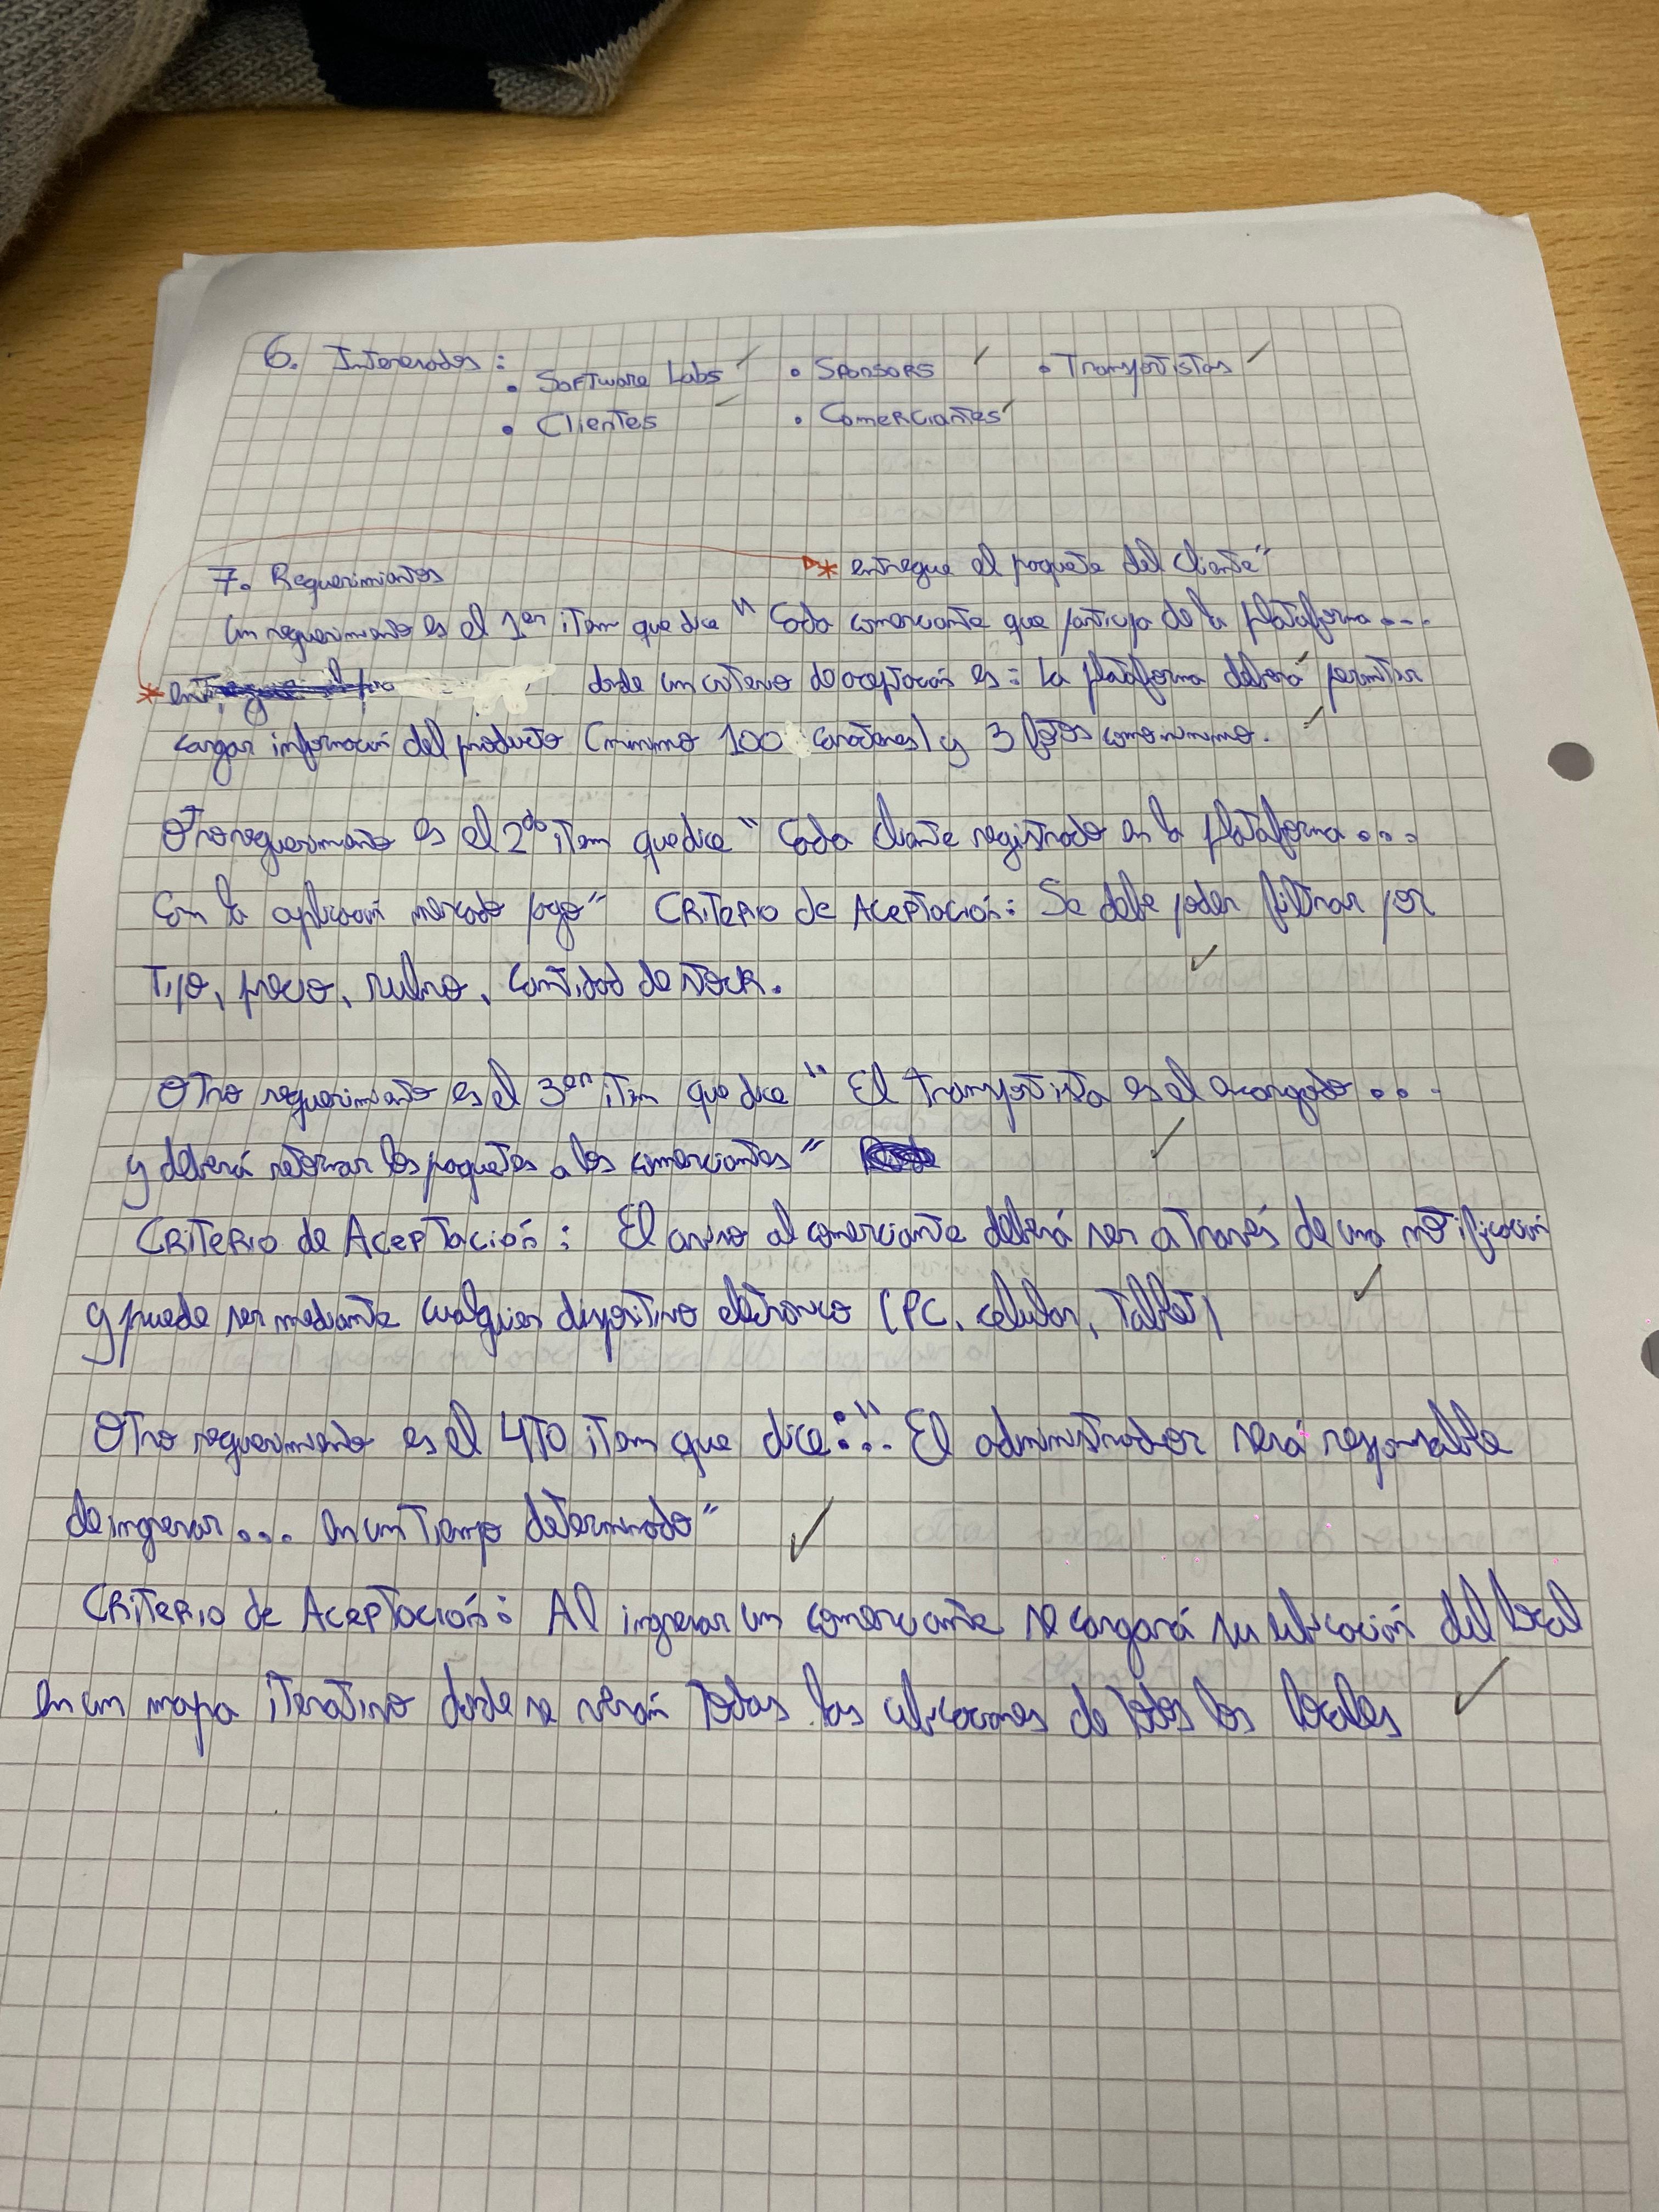 6. Interesados:
• Software Labs • Sponsors • Transportistas
• Clientes • Comerciantes
* entregue el paquete del cliente"
7. Requerimientos
Un requerimiento es el 1er item que dice " Cada comerciante que participa de la plataforma...
* donde un criterio de aceptación es: La plataforma deberá permitir
cargar información del producto (minimo 100 caracteres) y 3 fotos como minimo.
Otro requerimiento es el 2do item que dice " Cada cliente registrado en la plataforma...
Con la aplicación mercado pago" Criterio de Aceptación: Se debe poder filtrar por
Tipo, precio, rubro, cantidad de stock.
Otro requerimiento es el 3er item que dice " El transportista es el encargado...
y deberá retornar los paquetes a los comerciantes"
Criterio de Aceptación: El aviso al comerciante deberá ser a través de una notificación
y puede ser mediante cualquier dispositivo eletronico (PC, celular, Tablet)
Otro requerimiento es el 4to item que dice:" El administrador será responsable
de ingresar... en un tiempo determinado"
Criterio de Aceptación: Al ingresar un comerciante se cargará su ubicación del local
en un mapa iterativo donde se verán todas las ubicaciones de todos los locales